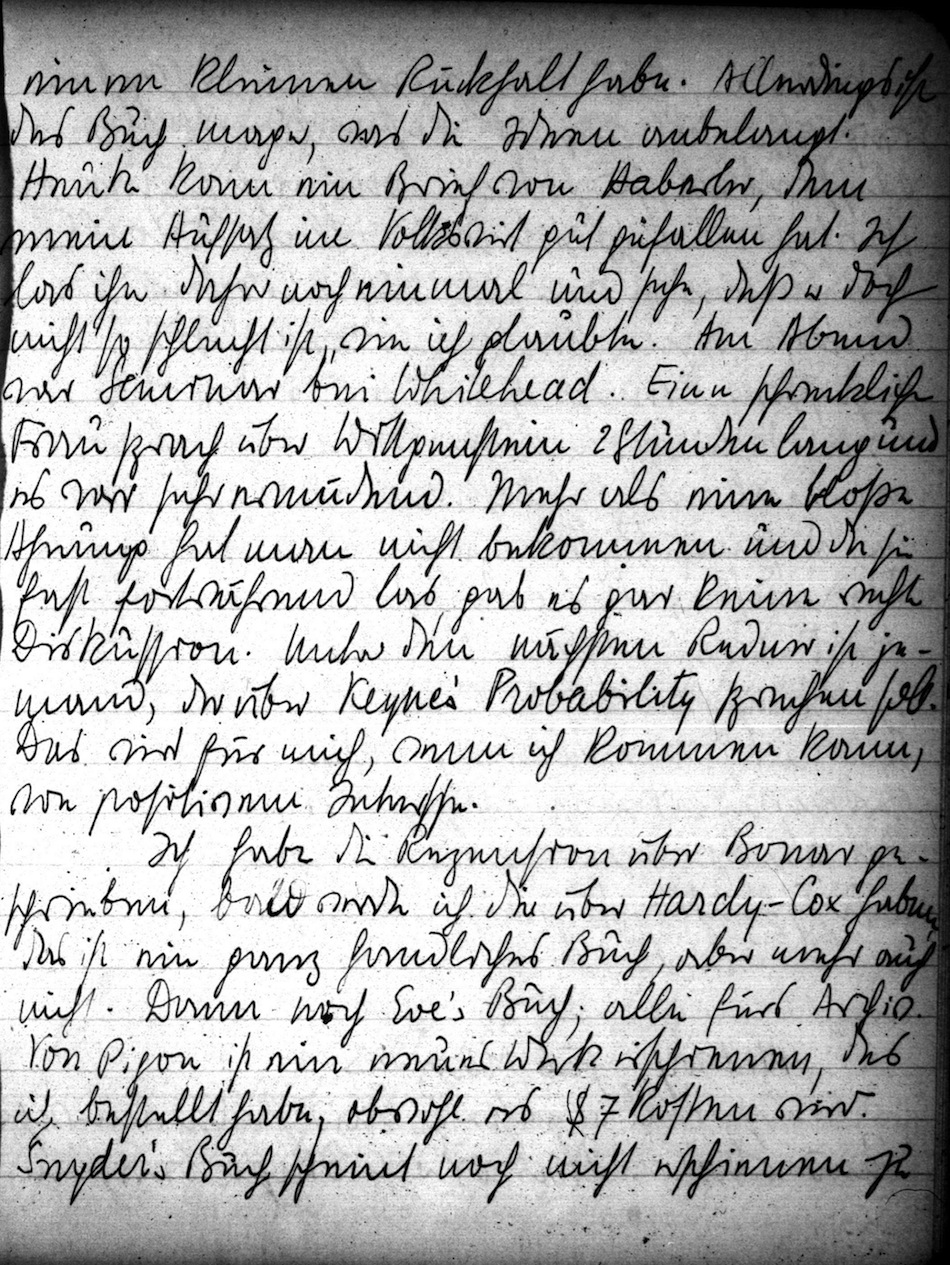 einen kleinen Rückhalt habe. Allerdings ist
das Buch mager, was die Ideen anbelangt.
Heute kam ein Brief von Haberler, dem
mein Aufsatz im Volkswirt gut gefallen hat. Ich
las ihn daher noch einmal und sehe, daß er doch
nicht so schlecht ist, wie ich glaubte. Am Abend
war Seminar bei Whitehead. Eine schreckliche
Frau sprach über Wittgenstein 2 Stunden lang und
es war sehr ermüdend. Mehr als eine bloße
Ahnung hat man nicht bekommen und da sie
fast fortwährend las, gab es gar keine rechte
Diskussion. Unter den nächsten Rednern ist je-
mand, der über Keynes's Probability sprechen soll.
Das wird für mich, wenn ich kommen kann,
von positivem Interesse.
Ich habe die Rezension über Bonar ge-
schrieben, bald werde ich die über Hardy-Cox haben,
das ist ein ganz handliches Buch, aber mehr auch
nicht. Dann noch Eve's Buch; alle fürs Archiv.
Von Pigou ist ein neues Werk erschienen, das
ich bestellt habe, obwohl es $7 kosten wird.
Snyder's Buch scheint noch nicht erschienen zu